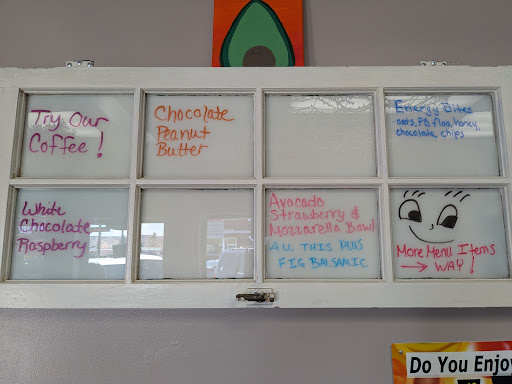 Try Our
Coffee!
Chocolate
Peanut
Butter
Energy Bites
oats, PB, flax, honey,
chocolate, chips
White
Chocolate
Raspberry
Avocado
Strawberry &
Mozzarella Bowl
ALL THIS PLUS
FIG BALSAMIC
More Menu Items
→ WAY!
Do You Enjoy